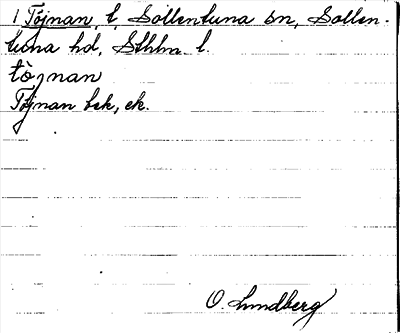 1 Töjnan, t, Sollentuna sn, Sollen-
tuna hd, Sthlm l.
tö̀jnan
Töjnan bsk, ek.
O. Lundberg